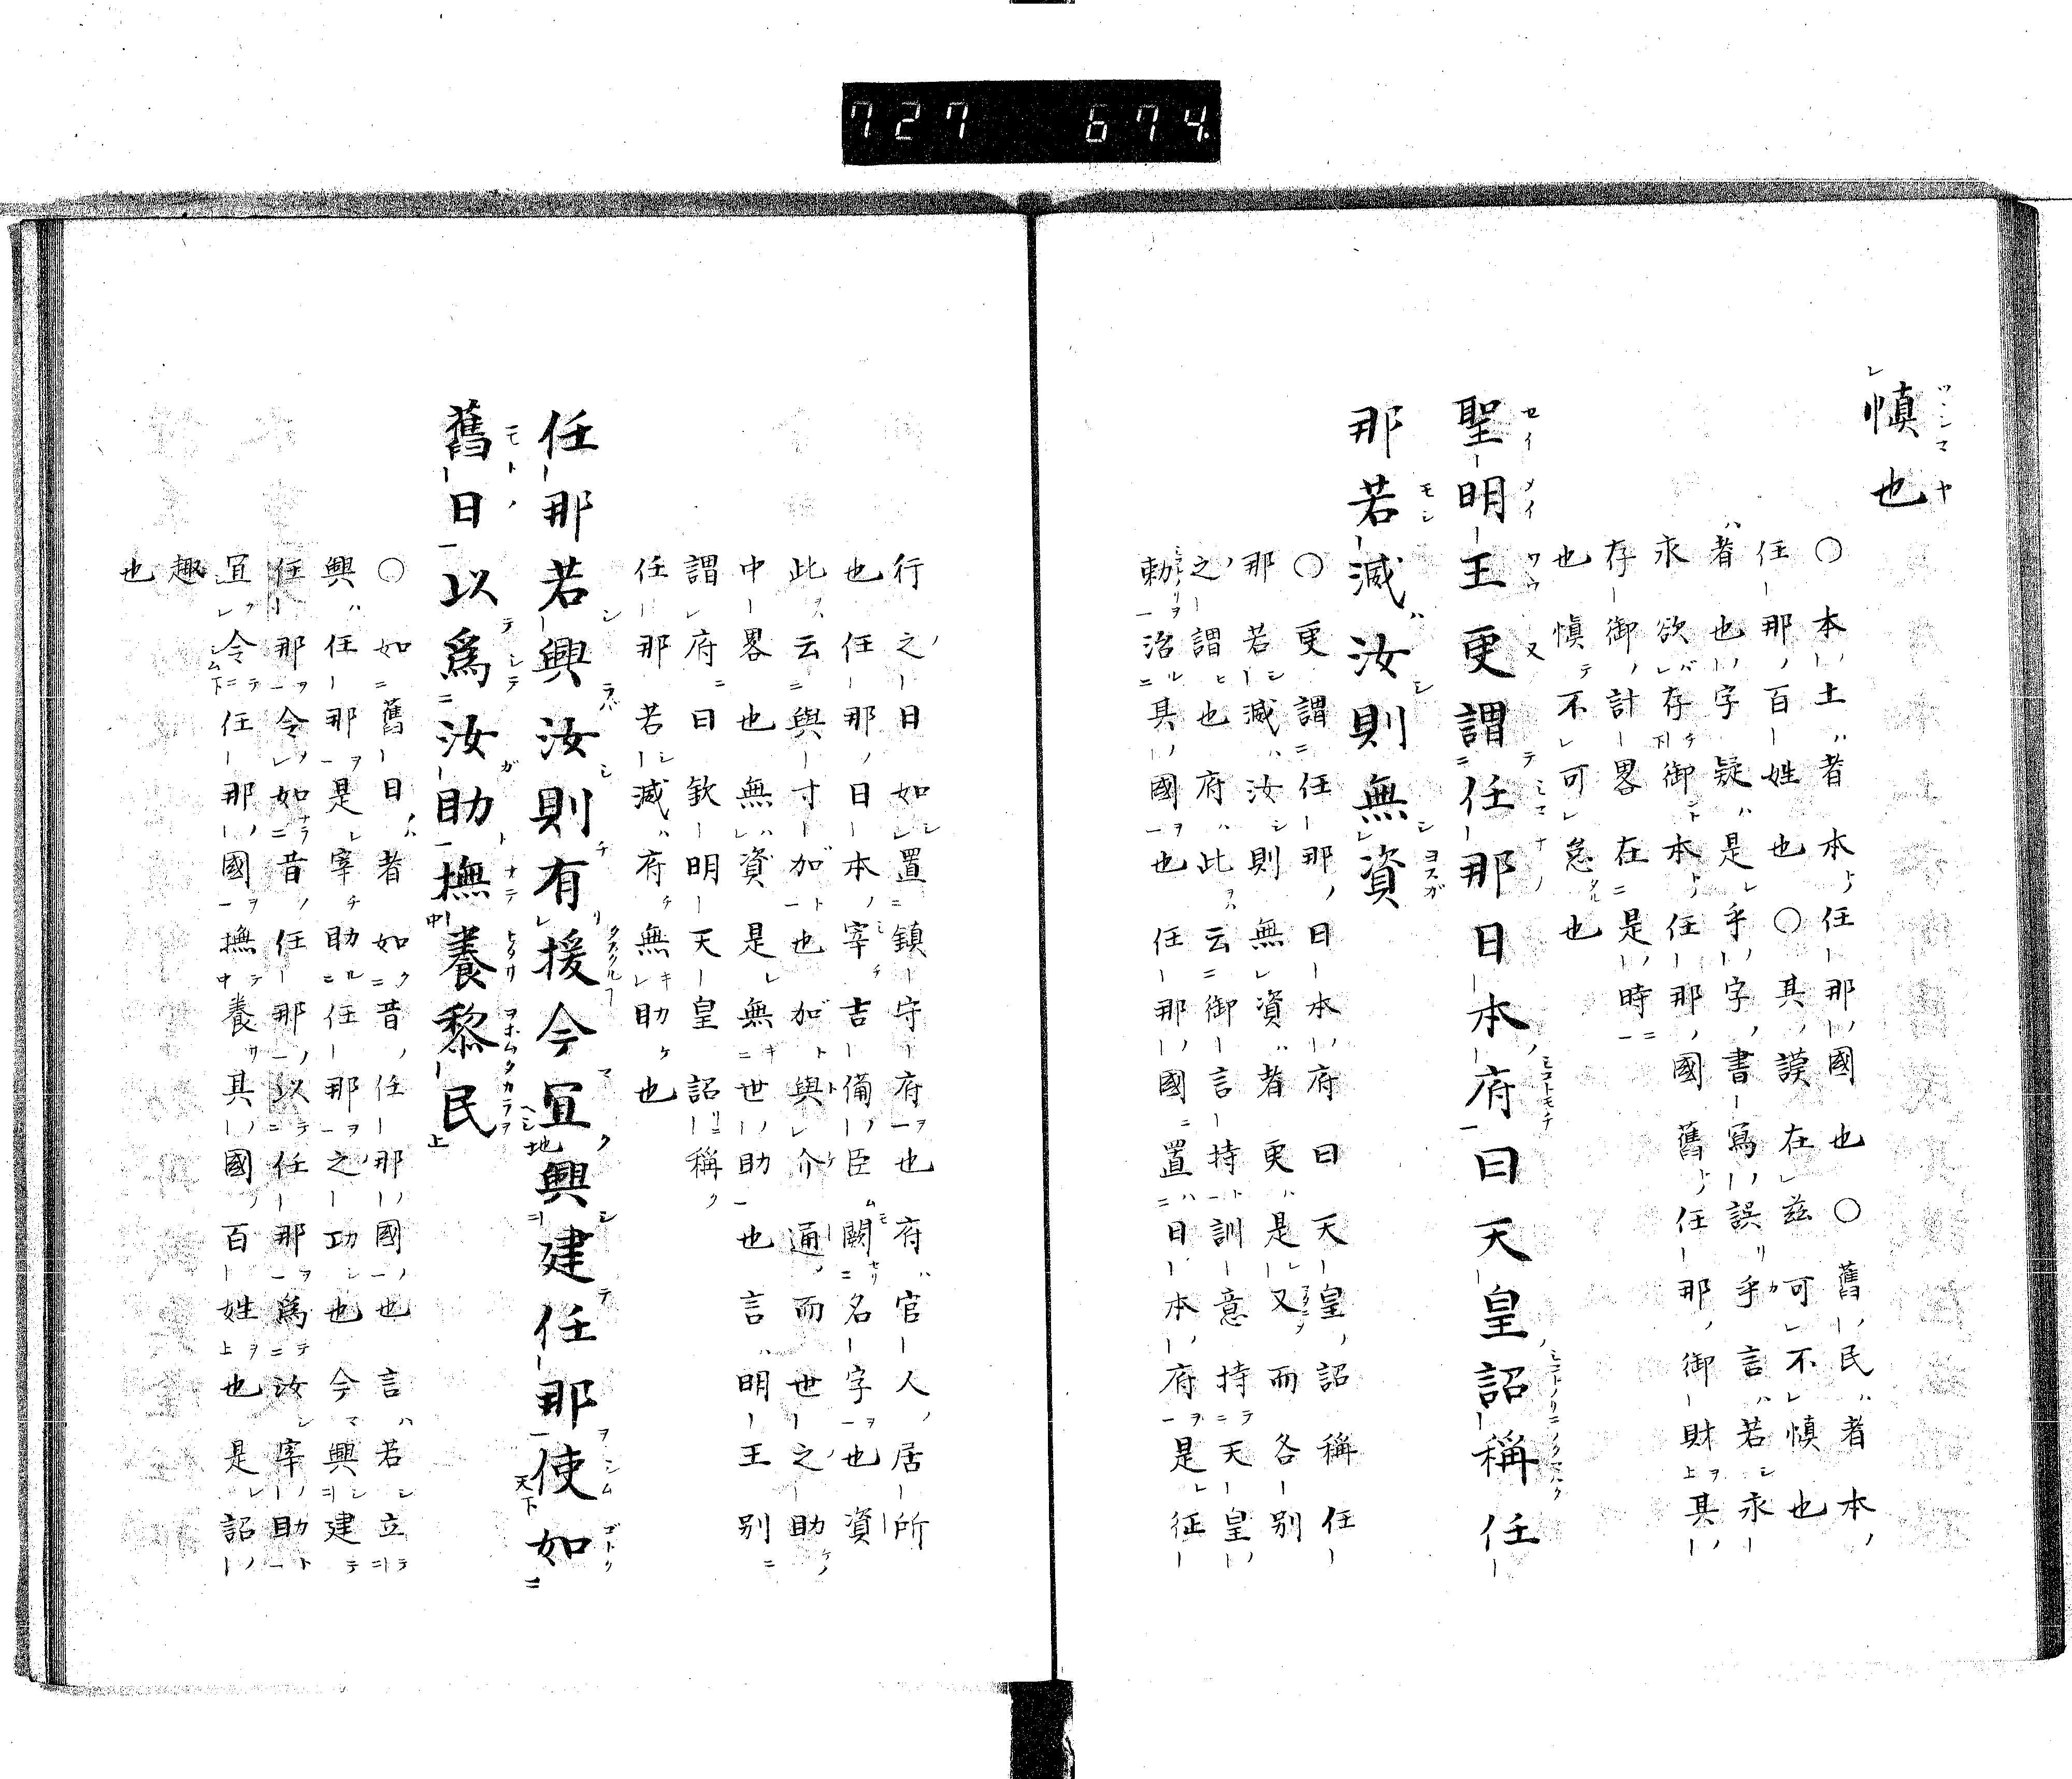 727 674.
慎也
○本土者本任那國也○舊民者本
任那百姓也○其謨在茲可不慎也
者也字疑是乎字書寫誤乎言若永
永欲存御本任那國舊任那御財其
存御計畧在是時
也慎不可怠也
聖明王更謂任那日本府曰天皇詔稱任
那若滅汝則無資
○更謂任那日本府曰天皇詔稱任
那若滅汝則無資者更是又而各別
之謂也府此云御言持訓意持天皇
勅治其國也任那國置日本府是征
行之日如置鎮守府也府官人居所
也任那日本宰吉備臣闕名字也資
此云與寸加也加與介通而世之助
中畧也無資是無世助也言明王別
謂府曰欽明天皇詔稱
任那若滅府無助也
任那若興汝則有援今宜興建任那使如
舊日以爲汝助撫養黎民
○如舊日者如昔任那國也言若立
興任那是宰助任那之功也今興建
任那令如昔任那以任那爲汝宰助
宜令任那國撫養其國百姓也是詔
趣
也